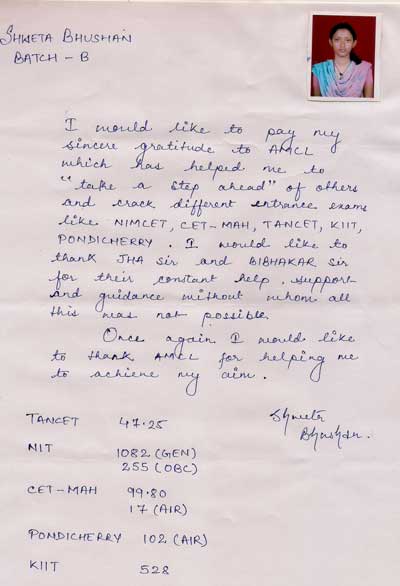 SHWETA BHUSHAN
BATCH - B
I would like to pay my
sincere gratitude to AMCL
which has helped me to
"take a step ahead" of others
and crack different entrance exams
like NIMCET, CET-MAH, TANCET, KIIT,
PONDICHERRY. I would like to
thank JHA Sir and BIBHAKAR Sir
for their constant help, support
and guidance without whom all
this was not possible.
Once again I would like
to thank AMCL for helping me
to achieve my aim.
Shweta
Bhushan.
TANCET 47.25
NIT 1082 (GEN)
255 (OBC)
CET-MAH 99.80
17 (AIR)
PONDICHERRY 102 (AIR)
KIIT 528